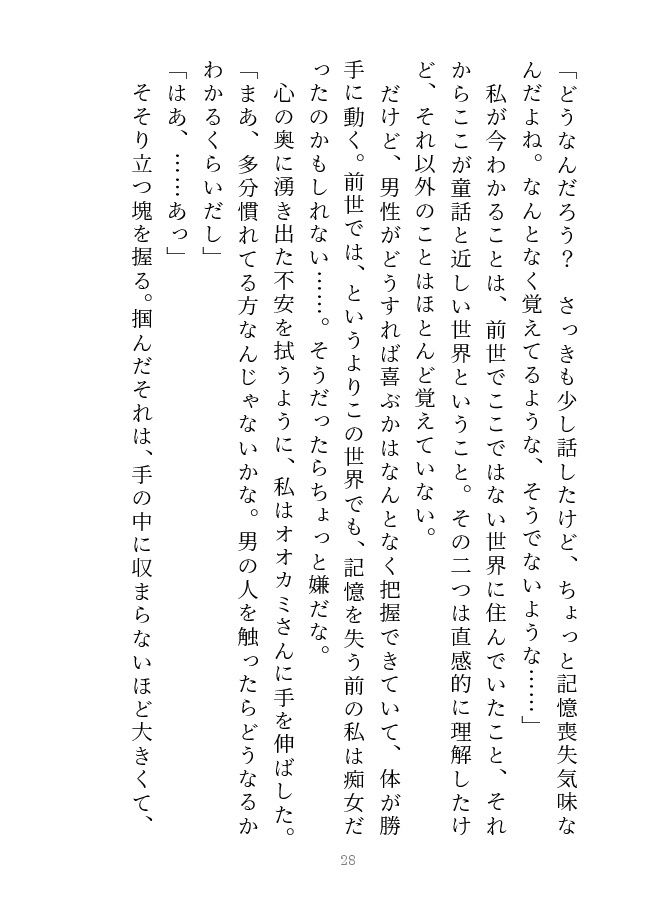 「どうなんだろう？　さっきも少し話したけど、ちょっと記憶喪失気味な
んだよね。なんとなく覚えてるような、そうでないような……」
　私が今わかることは、前世でここではない世界に住んでいたこと、それ
からここが童話と近しい世界ということ。その二つは直感的に理解したけ
ど、それ以外のことはほとんど覚えていない。
　だけど、男性がどうすれば喜ぶかはなんとなく把握できていて、体が勝
手に動く。前世では、というよりこの世界でも、記憶を失う前の私は痴女だ
ったのかもしれない……。そうだったらちょっと嫌だな。
　心の奥に湧き出た不安を拭うように、私はオオカミさんに手を伸ばした。
「まあ、多分慣れてる方なんじゃないかな。男の人を触ったらどうなるか
わかるくらいだし」
「はあ、……あっ」
　そそり立つ塊を握る。掴んだそれは、手の中に収まらないほど大きくて、
28